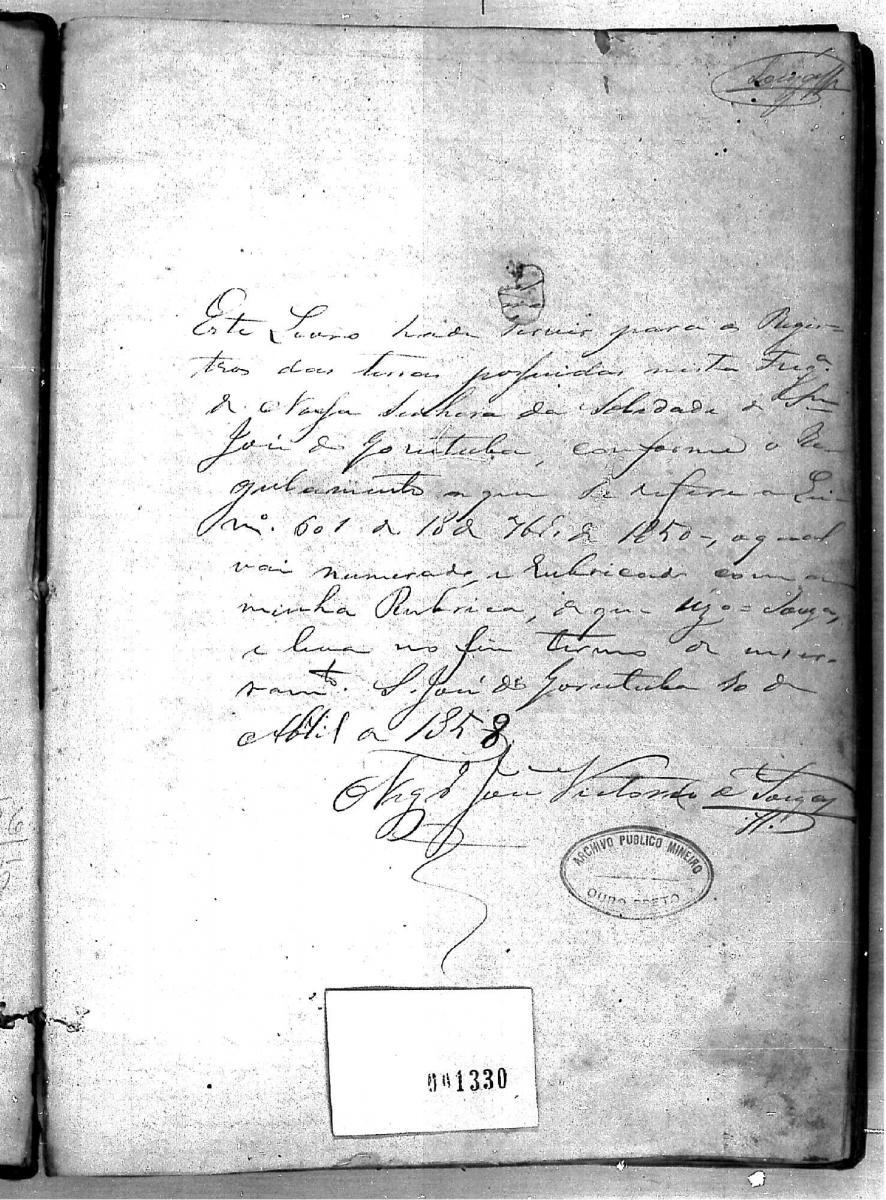 Souza
Este Livro hade servir para o Regis-
tros das terras possuidas nesta Freg.ª
de Nossa Senhora da Soledade de
José do Gorutuba, conforme o Re
gulamento a que se refere a Lei
nº. 601 de 18 de 7bro. de 1850, o qual
vai numerado, e Rubricado com a
minha Rubrica, de que uzo = Souza,
e leva no fim termo de encer-
ramto. S. José do Gorutuba 10 de
Abril de 1858
José Victorio de Souza
ARCHIVO PUBLICO MINEIRO
OURO PRETO
001330